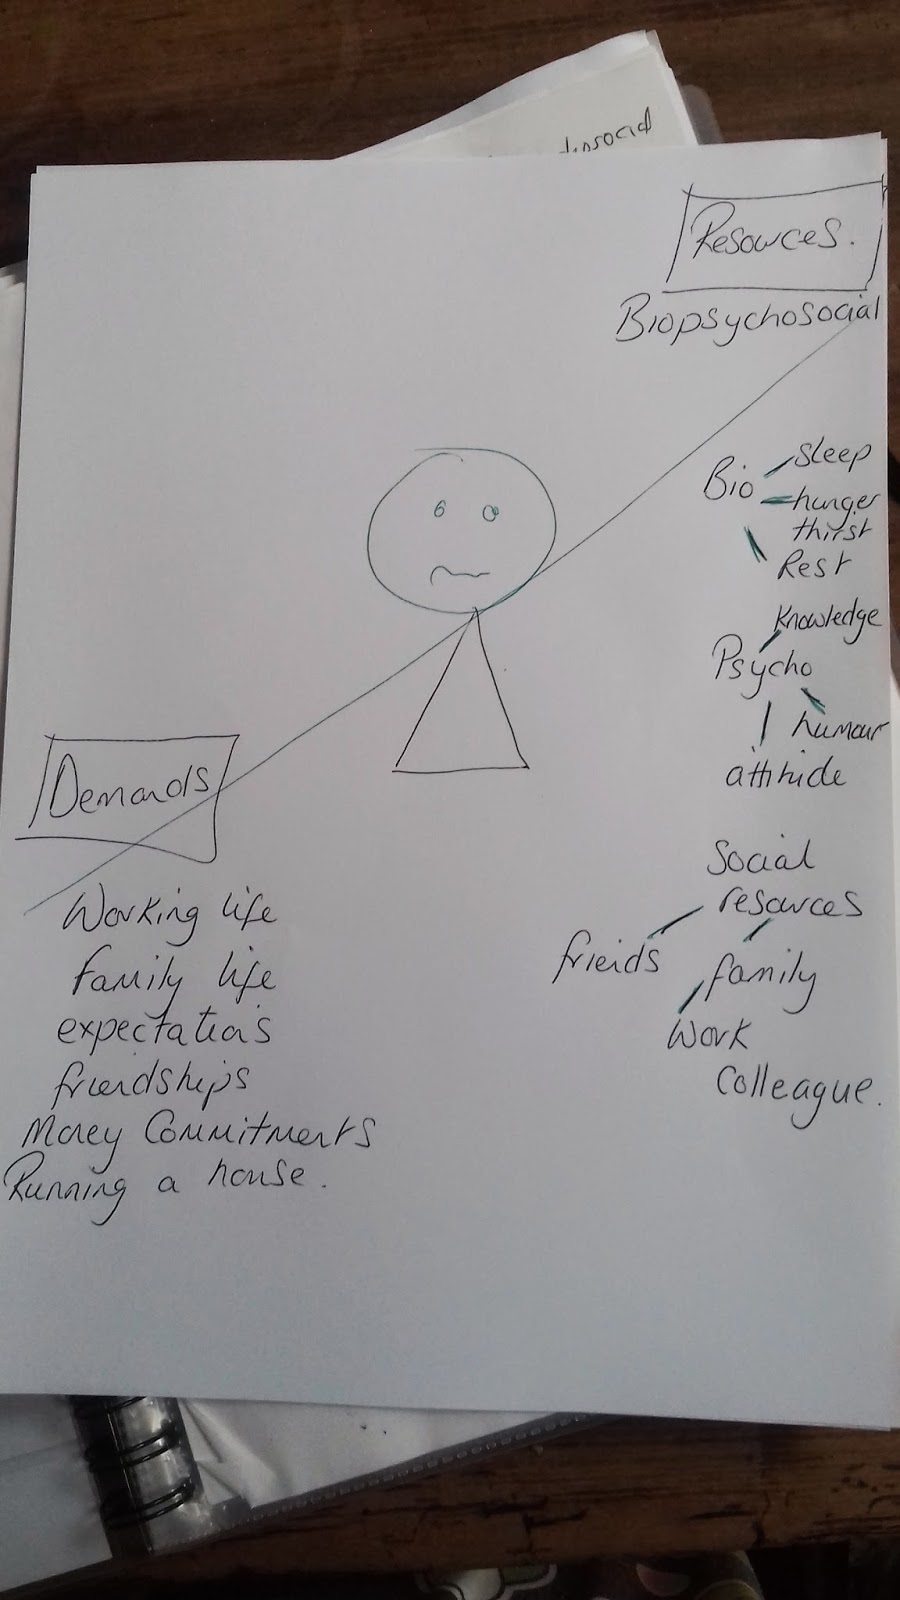 Resources.
Biopsychosocial
Bio
sleep
hunger
thirst
Rest
Knowledge
Psycho
humour
attitude
Social
resources
friends
family
Work
Colleague.
Demands
Working life
family life
expectations
friendships
Money Commitments
Running a house.